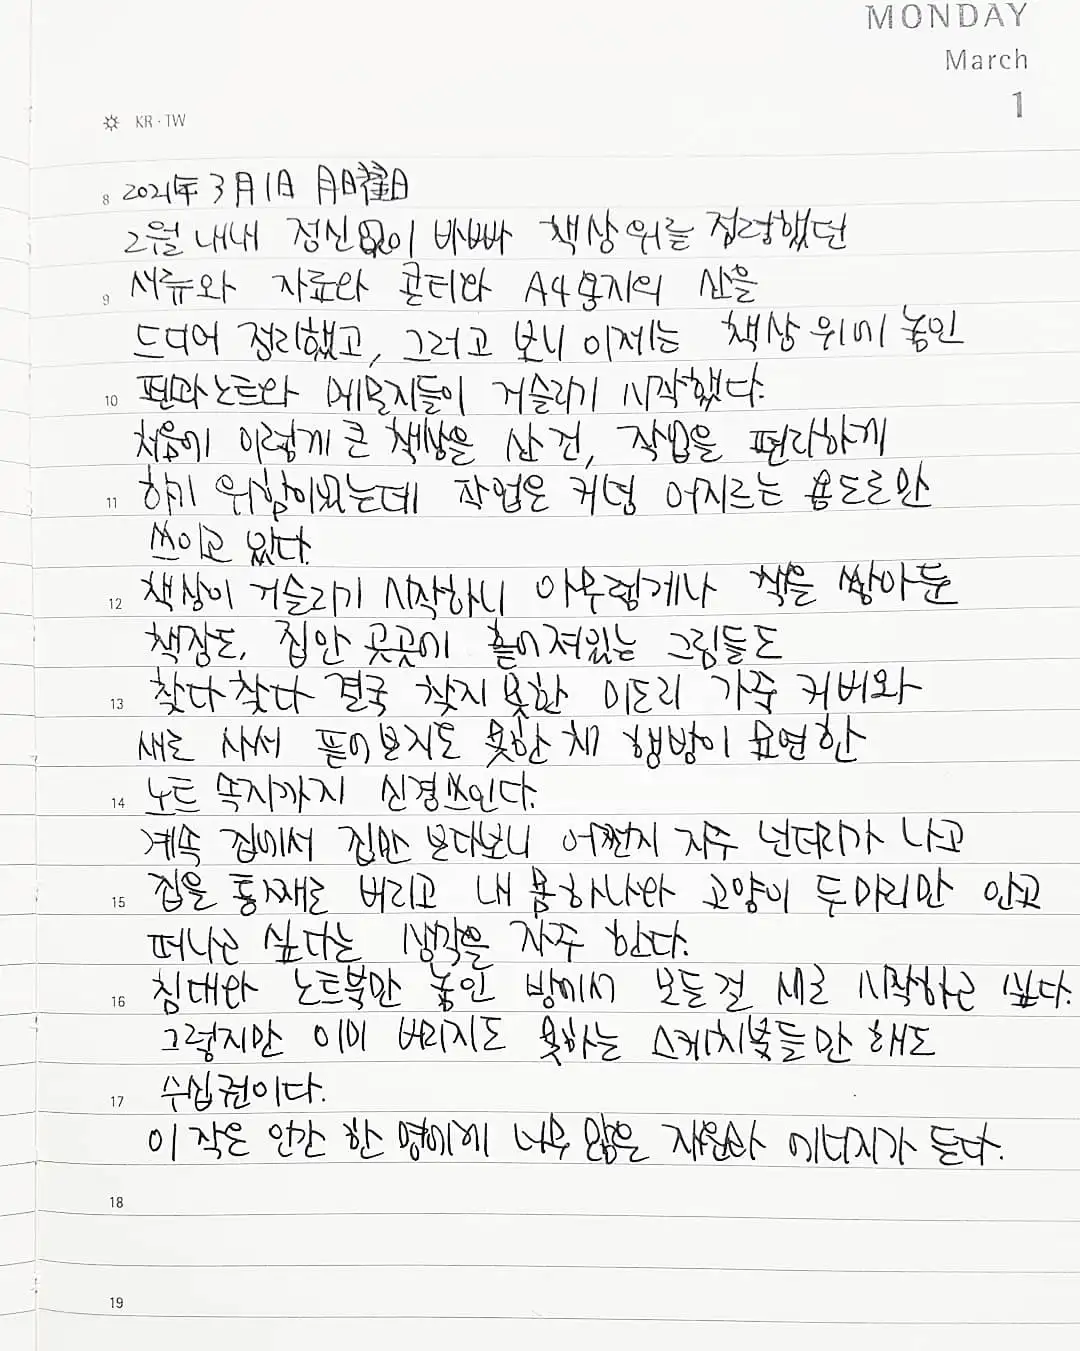 MONDAY
March
1
KR · TW
8 2021年 3月1日 月曜日
2월 내내 정신없이 바빠 책상 위를 점령했던
9 서류와 자료와 콘티와 A4용지의 산을
드디어 정리했고, 그러고 보니 이제는 책상 위에 놓인
10 펜과 노트와 메모지들이 거슬리기 시작했다.
처음에 이렇게 큰 책상을 산 건, 작업을 편리하게
11 하기 위함이었는데 작업은 커녕 어지르는 용도로만
쓰이고 있다.
12 책상이 거슬리기 시작하니 아무렇게나 책을 쌓아둔
책장도, 집안 곳곳에 흩어져있는 그림들도
13 찾다 찾다 결국 찾지 못한 미도리 가죽 커버와
새로 사서 뜯어보지도 못한 채 행방이 묘연한
14 노트 속지까지 신경쓰인다.
계속 집에서 집만 보다보니 어쩐지 자주 넌더리가 나고
15 집을 통째로 버리고 내 몸 하나와 고양이 두마리만 안고
떠나고 싶다는 생각을 자주 한다.
16 침대와 노트북만 놓인 방에서 모든 걸 새로 시작하고 싶다.
그렇지만 이미 버리지도 못하는 스케치북들만 해도
17 수십권이다.
이 작은 인간 한 명에게 너무 많은 자원과 에너지가 든다.
18
19